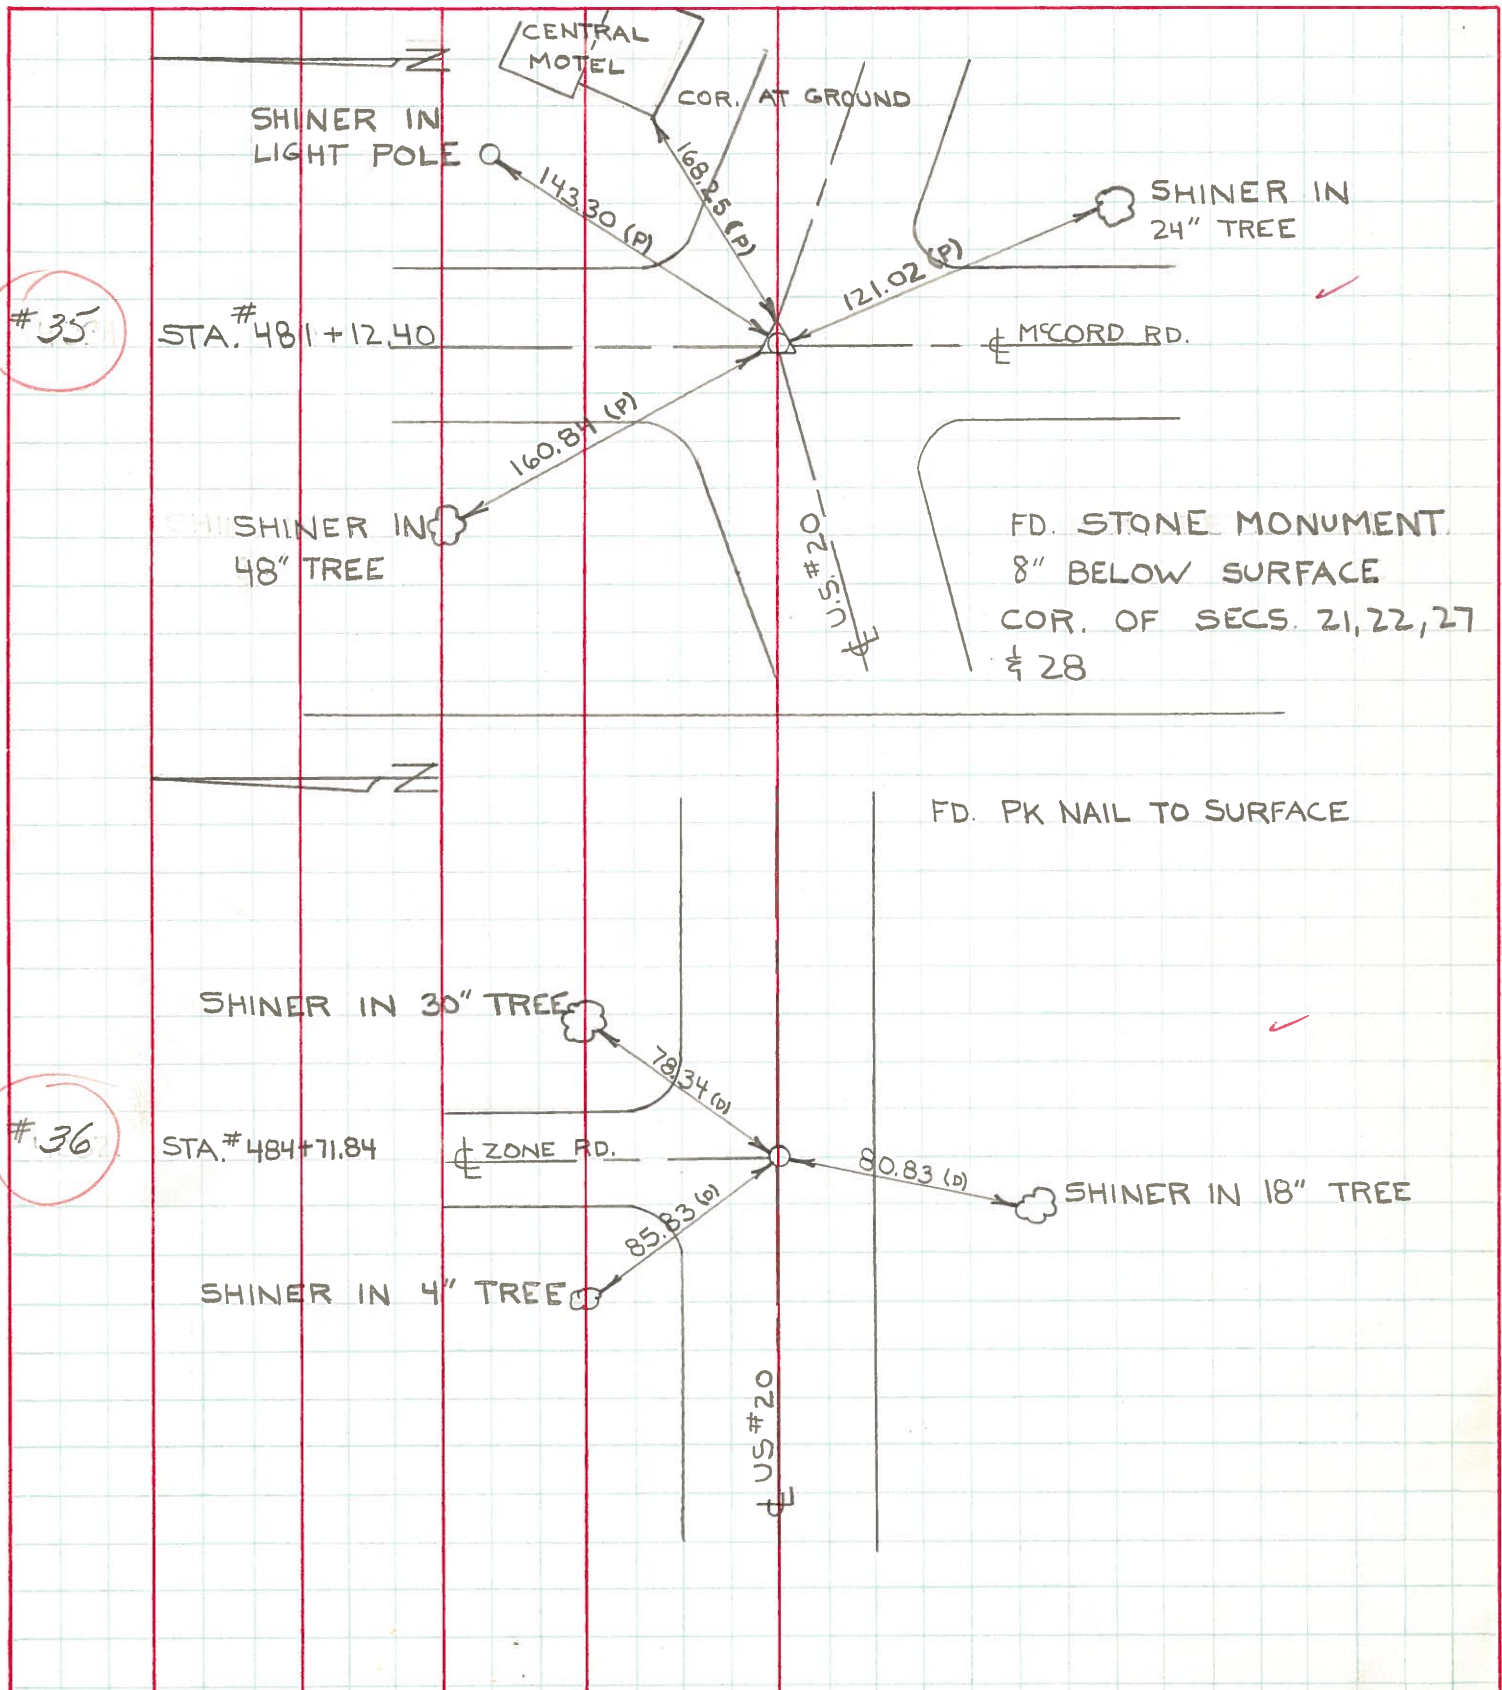 CENTRAL
MOTEL
N
COR. AT GROUND
SHINER IN
LIGHT POLE
143.30 (P)
168.25 (P)
SHINER IN
24" TREE
121.02 (P)
#35
STA.#481+12.40
℄ McCORD RD.
160.84 (P)
SHINER IN
48" TREE
℄ U.S. #20
FD. STONE MONUMENT
8" BELOW SURFACE
COR. OF SECS. 21, 22, 27
& 28
N
FD. PK NAIL TO SURFACE
SHINER IN 30" TREE
78.34 (D)
#36
STA.#484+71.84
℄ ZONE RD.
80.83 (D)
SHINER IN 18" TREE
85.83 (D)
SHINER IN 4" TREE
℄ US #20